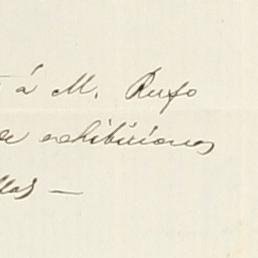 á M. Rufo
de exhibiciones
llas —